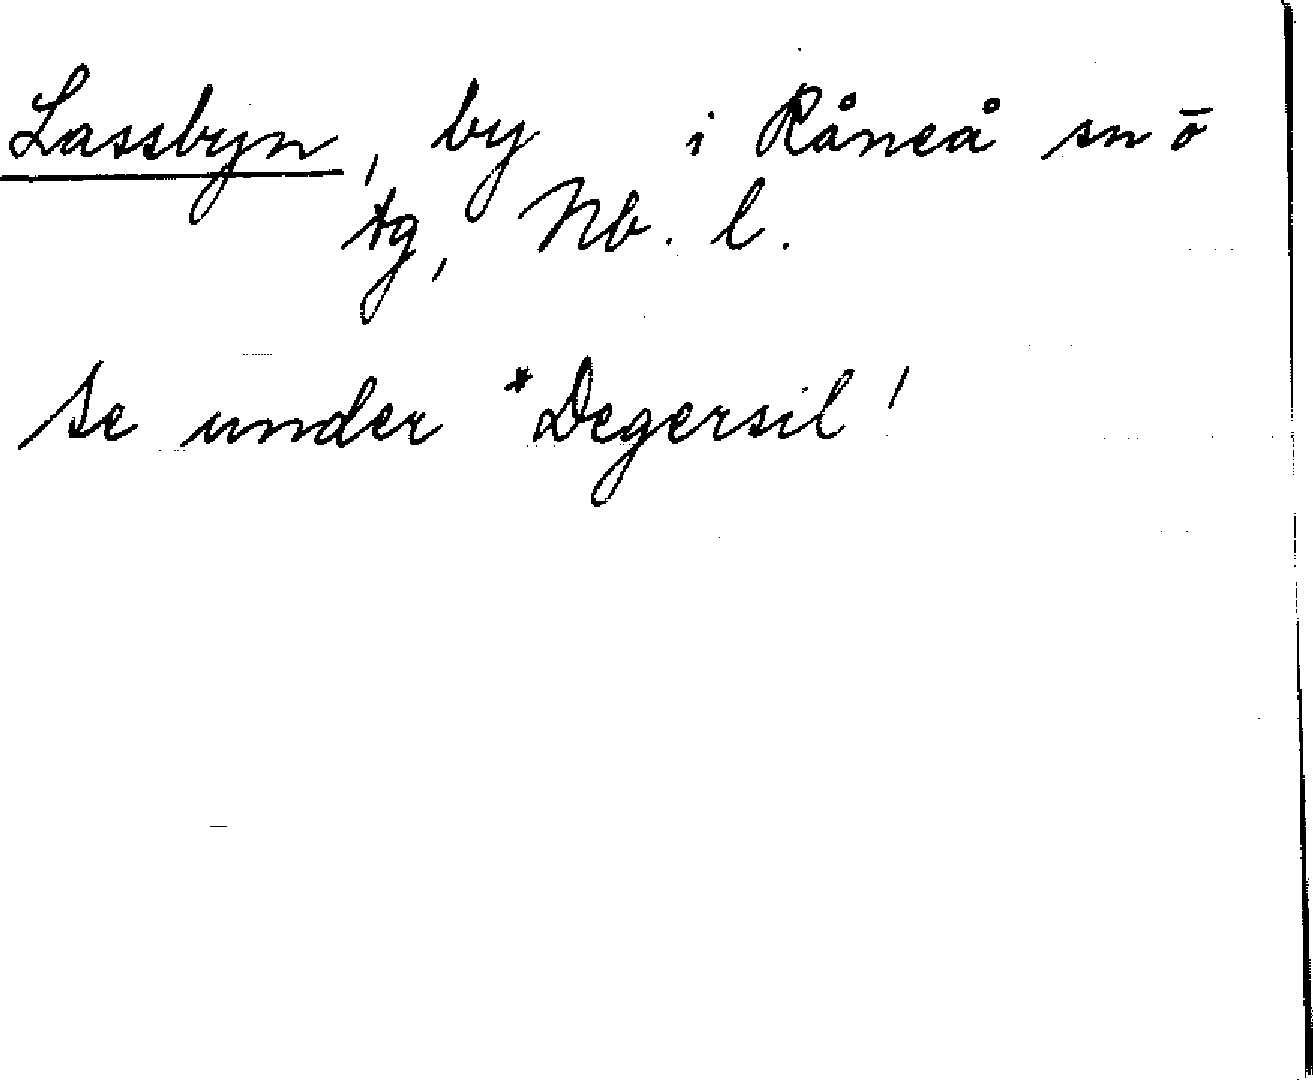 Lassbyn, by i Råneå sn ō
tg, Nb. l.
Se under *Degersil!